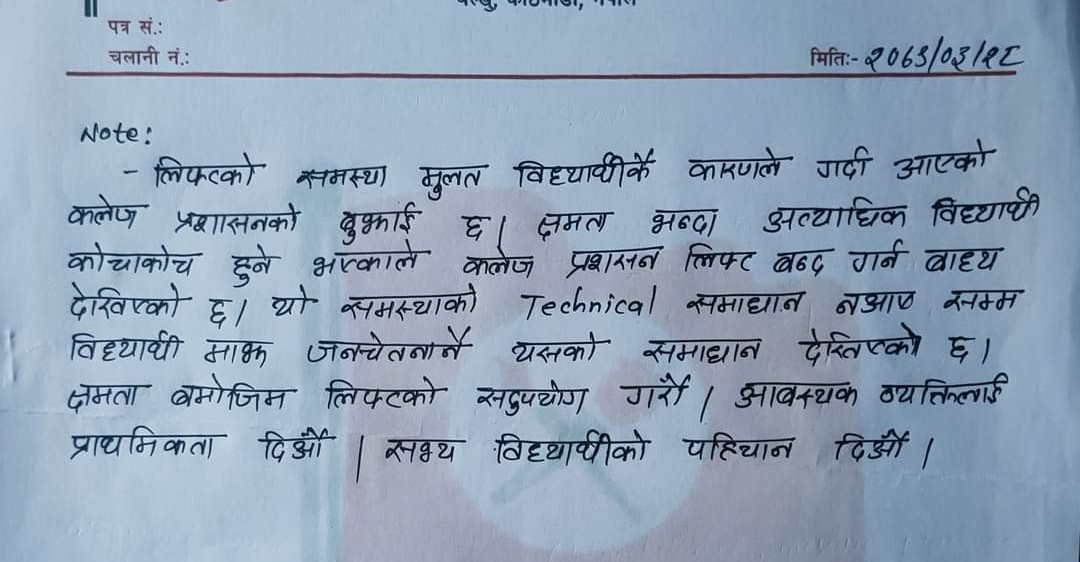 पत्र सं.:
चलानी नं.:
मितिः- २०८१/०३/२८
Note:
- लिफ्टको समस्या मुलत विद्यार्थीकै कारणले गर्दा आएको
कलेज प्रशासनको बुझाई छ। क्षमता भन्दा अत्याधिक विद्यार्थी
कोचाकोच हुने भएकाले कलेज प्रशासन लिफ्ट बन्द गर्न बाध्य
देखिएको छ। यो समस्याको Technical समाधान नआए सम्म
विद्यार्थी माझ जनचेतनानै यसको समाधान देखिएको छ।
क्षमता बमोजिम लिफ्टको सदुपयोग गरौं। आवस्यक व्यक्तिलाई
प्राथमिकता दिऔं। सभ्य विद्यार्थीको पहिचान दिऔं।